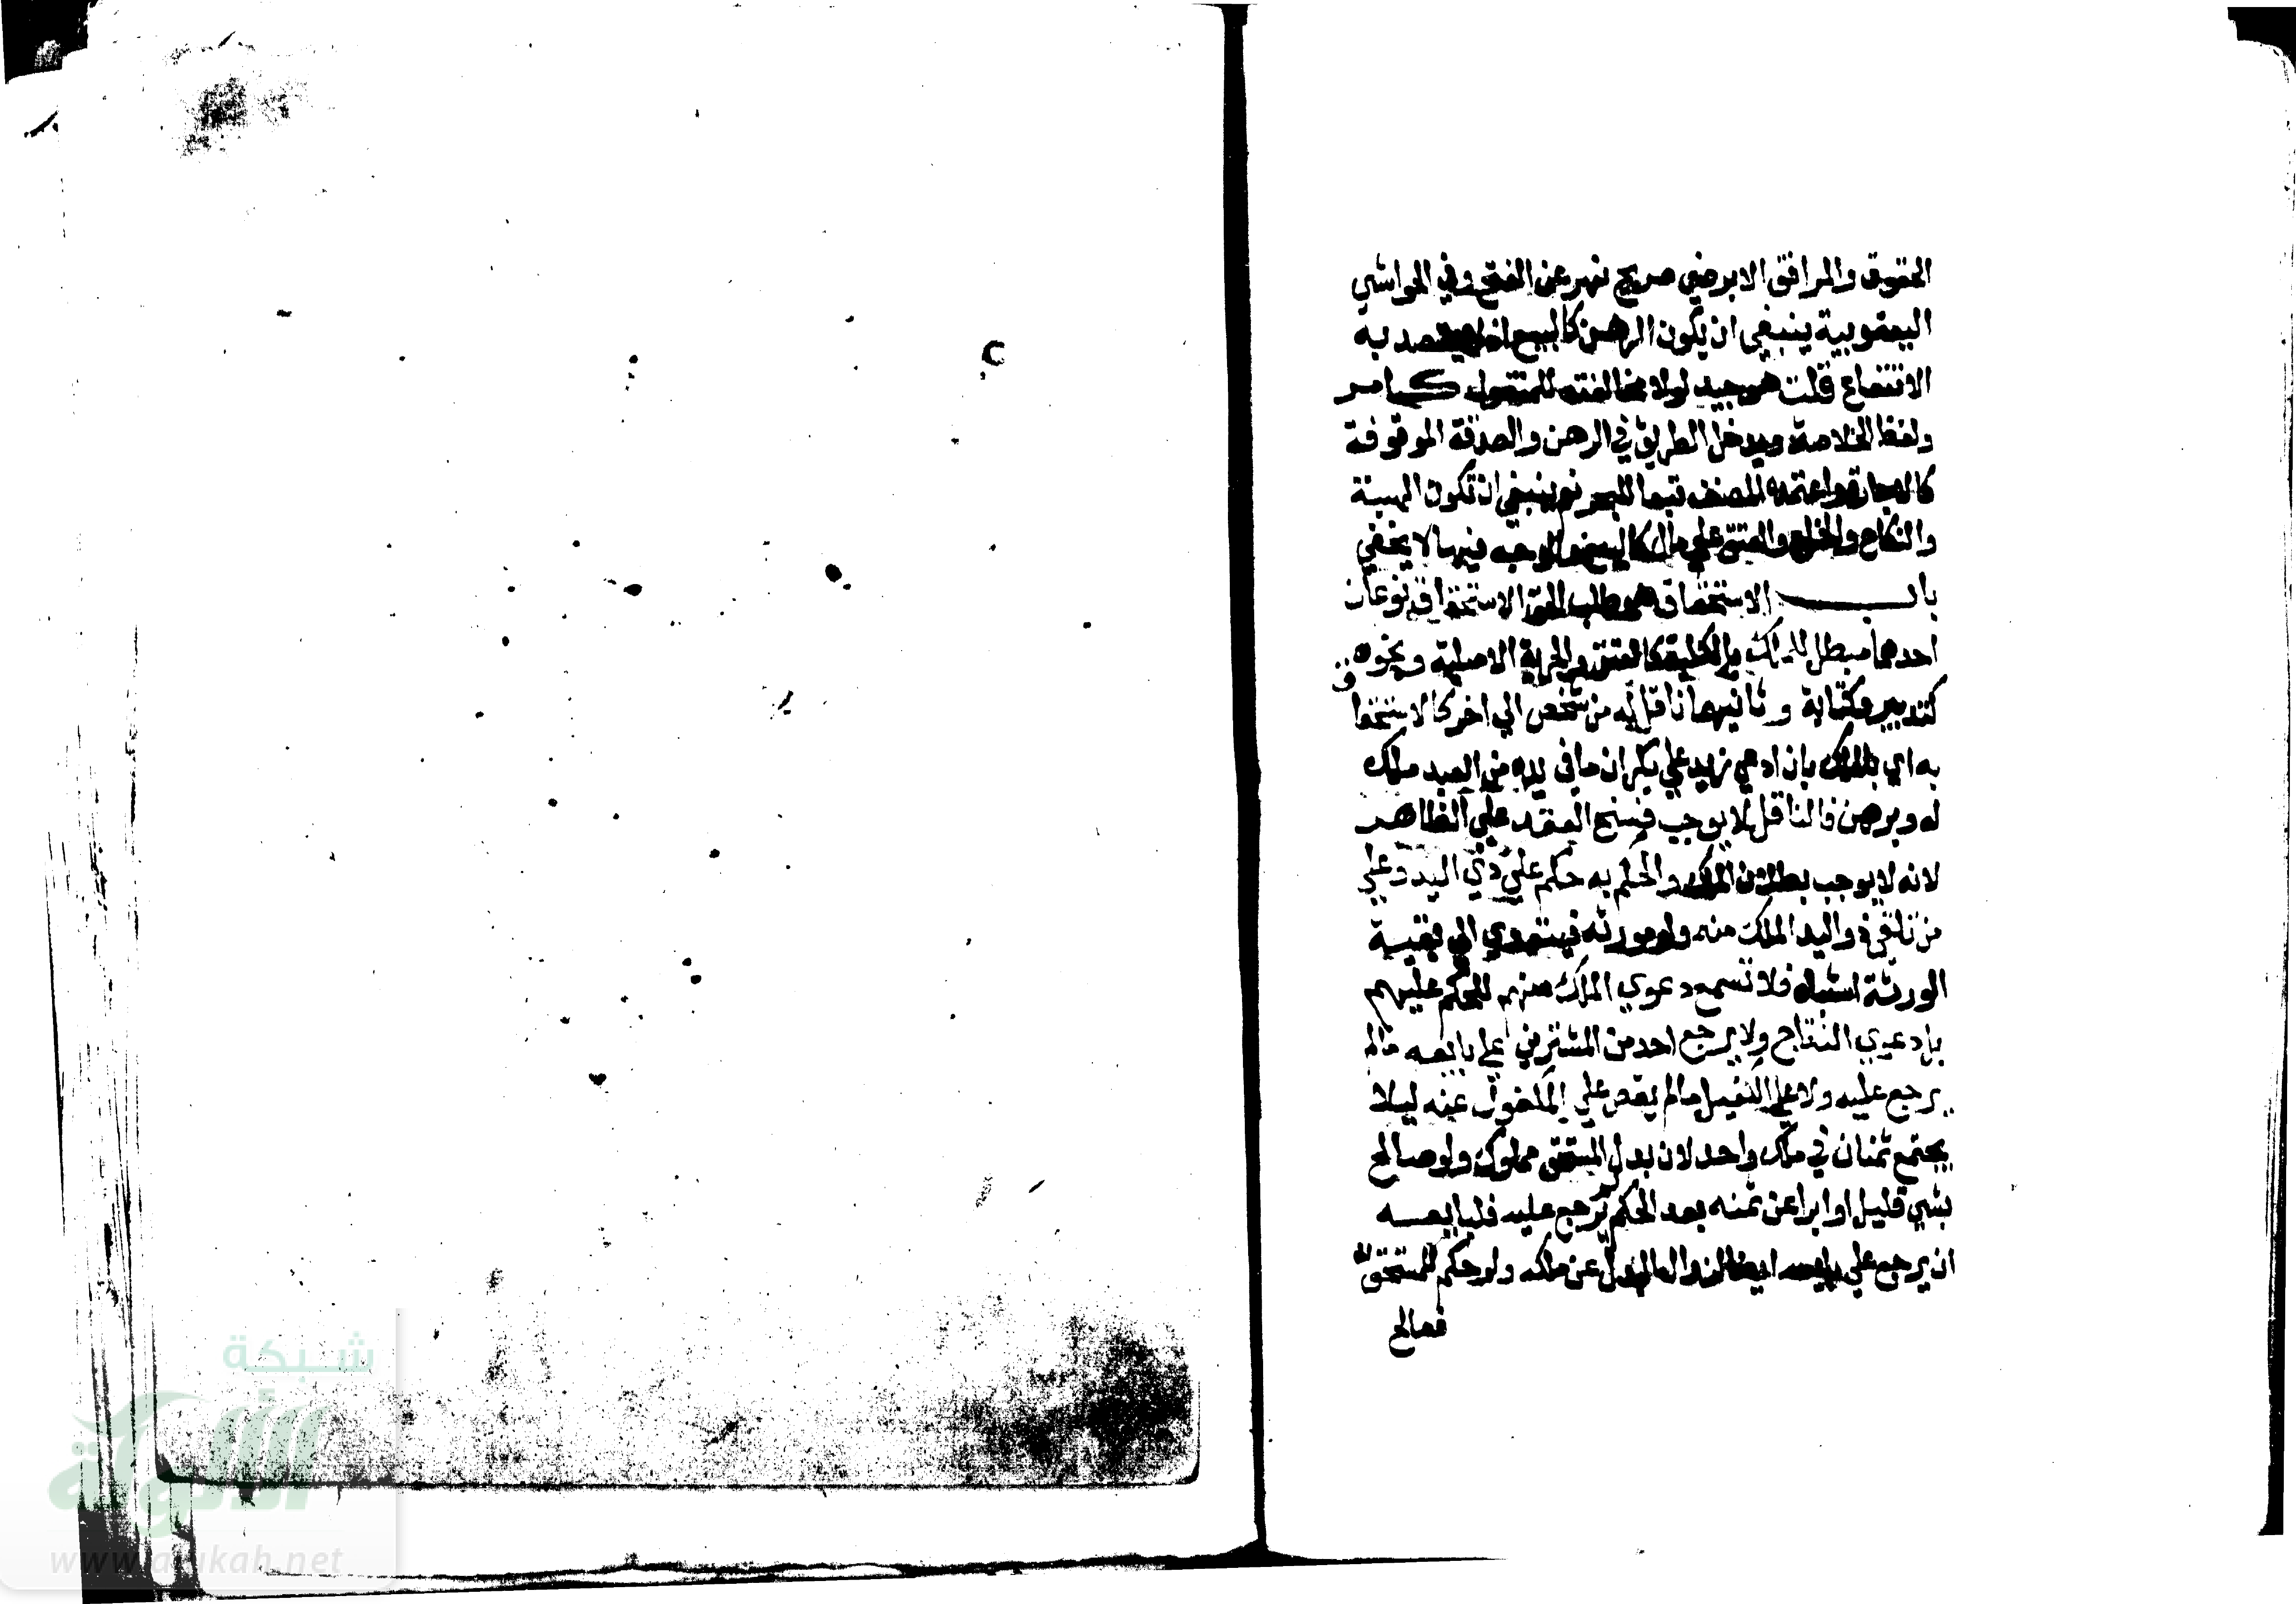 الحقوق والمرافق الا برضي صريح نهر عن الفتح وفي الحواشي
اليعقوبية ينبغي ان يكون الرهن كالبيع اذ لا يقصد به
الانتفاع قلت هو جيد لولا مخالفته للمنقول كما مر
ولفظ الخلاصة ويدخل الطريق في الرهن والصدقة الموقوفة
كالاجارة واعتمده المصنف تبعا للبحر نعم ينبغي ان تكون الهبة
والنكاح والخلع والعتق علي مال كالبيع والوجه فيها لا يخفي
باب الاستحقاق هو طلب الحق الاستحقاق نوعان
احدهما مبطل للملك بالكلية كالعتق والحرية الاصلية ونحوه
كتدبير وكتابة وثانيهما ناقل له من شخص الي اخر كالاستحقاق
به اي بالملك بان ادعي زيد علي بكر ان ما في يده من العبد ملك
له وبرهن فالناقل لا يوجب فسخ العقد علي الظاهر
لانه لا يوجب بطلان الملك والحكم به حكم علي ذي اليد وعلي
من تلقي ذو اليد الملك منه ولو مورثه فيتعدي الي بقية
الورثة اشباه فلا تسمع دعوي الملك منهم للحكم عليهم
بل دعوي النتاج ولا يرجع احد من المشترين علي بايعه مالم
يرجع عليه ولا علي الكفيل مالم يقض علي المكفول عنه ليلا
يجتمع ثمنان في ملك واحد لان بدل المستحق مملوك ولو صالح
بشي قليل او ابرا عن ثمنه بعد الحكم يرجع عليه فلبايعه
ان يرجع علي بايعه ايضا لزوال البدل عن ملكه ولو حكم للمستحق
فصالح
شبكة
الألوكة
www.alukah.net